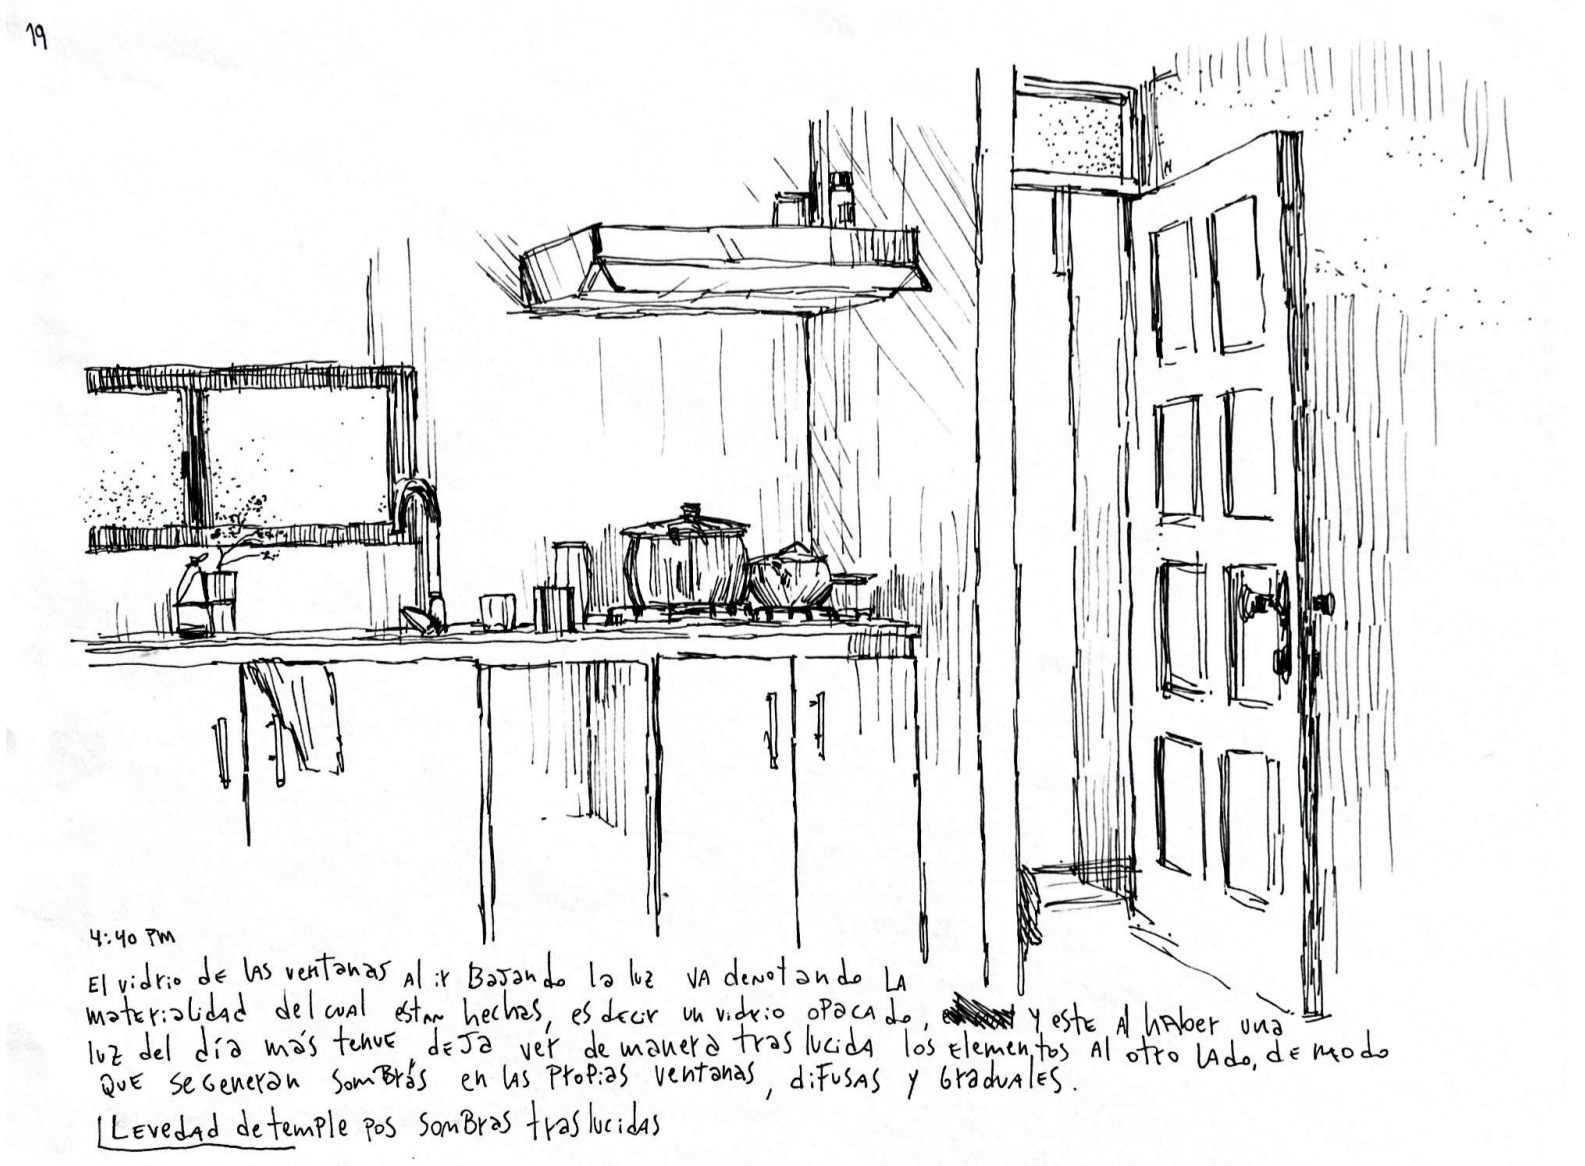 19
4:40 PM
El vidrio de las ventanas al ir bajando la luz va denotando la
materialidad del cual están hechas, es decir un vidrio opacado, y este al haber una
luz del día más tenue, deja ver de manera traslucida los elementos al otro lado, de modo
que se generan sombrás en las propias ventanas, difusas y graduales.
Levedad de temple pos sombras traslucidas